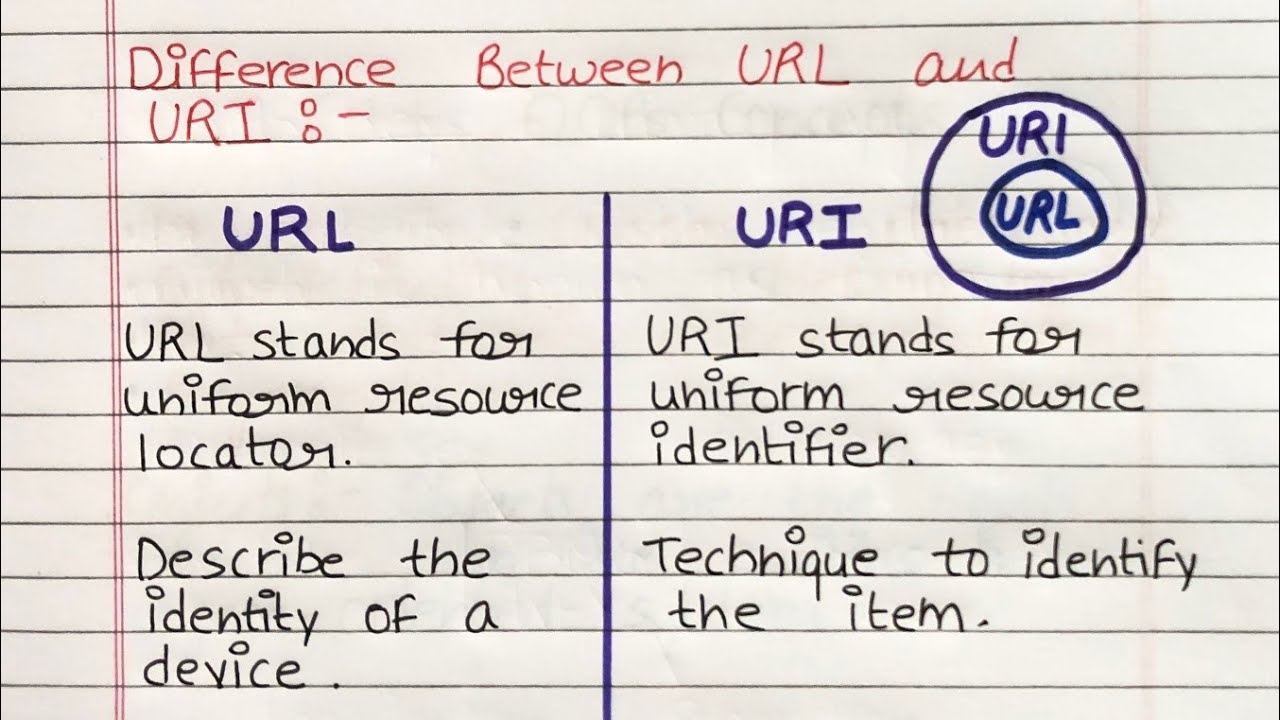 Difference Between URL and
URI :-
URI
URL
URL
URL stands for
uniform resource
locator.
Describe the
identity of a
device.
URI
URI stands for
uniform resource
identifier.
Technique to identify
the item.